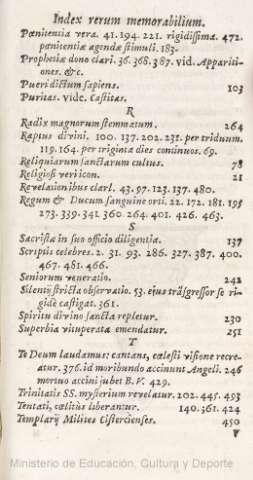 Index rerum memorabilium.
Pœnitentia vera. 41. 194. 221. rigidissima. 472.
pœnitentiæ agendæ stimuli. 183.
Prophetiæ dono clari. 36. 368. 387. vid. Appariti-
ones. &c.
Pueri dictum sapiens. 103
Puritas. vide. Castitas.
R
Radix magnorum stemmatum. 264
Raptus divini. 100. 137. 202. 231. per triduum.
119. 164. per triginta dies continuos. 69.
Reliquiarum sanctarum cultus. 78
Religiosi veri icon. 21
Revelationibus clari. 43. 97. 123. 137. 480.
Regum & Ducum sanguine orti. 22. 172. 181. 195
273. 339. 341 360. 264. 401. 426. 463.
S
Sacristæ in suo officio diligentia. 137
Scriptis celebres. 2. 31. 93. 286. 327. 387. 400.
467. 481. 466.
Seniorum veneratio. 242
Silentij stricta observatio. 53. ejus trãsgressor se ri-
gidè castigat. 361.
Spiritu divino sancta repletur. 230
Superbia vituperata emendatur. 251
T
Te Deum laudamus: cantans, cœlesti visione recre-
atur. 376. id moribundo accinunt Angeli. 246
mortuo accini jubet B. V. 429.
Trinitatis SS. mysterium revelatur. 202. 445. 493
Tentati, cœlitùs liberantur. 140. 361. 424
Templarij Milites Cistercienses. 450
V
Ministerio de Educación, Cultura y Deporte